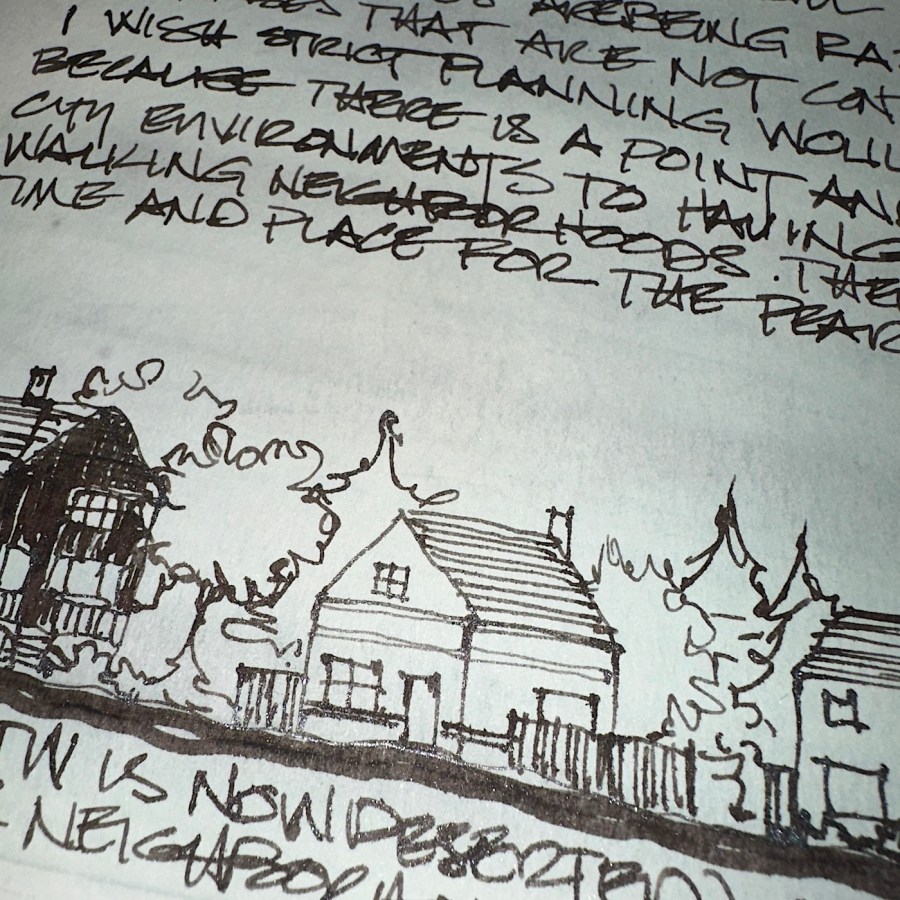 AREBEING RA
I WISH THAT ARE NOT CON
BECAUSE STRICT PLANNING WOUL
CITY THERE IS A POINT AN
WALKING ENVIRONMENTS TO HAVING
TIME NEIGHBORHOODS. THE
AND PLACE FOR THE PEAR
W IS NOW DESERTED
NEIGHBOR